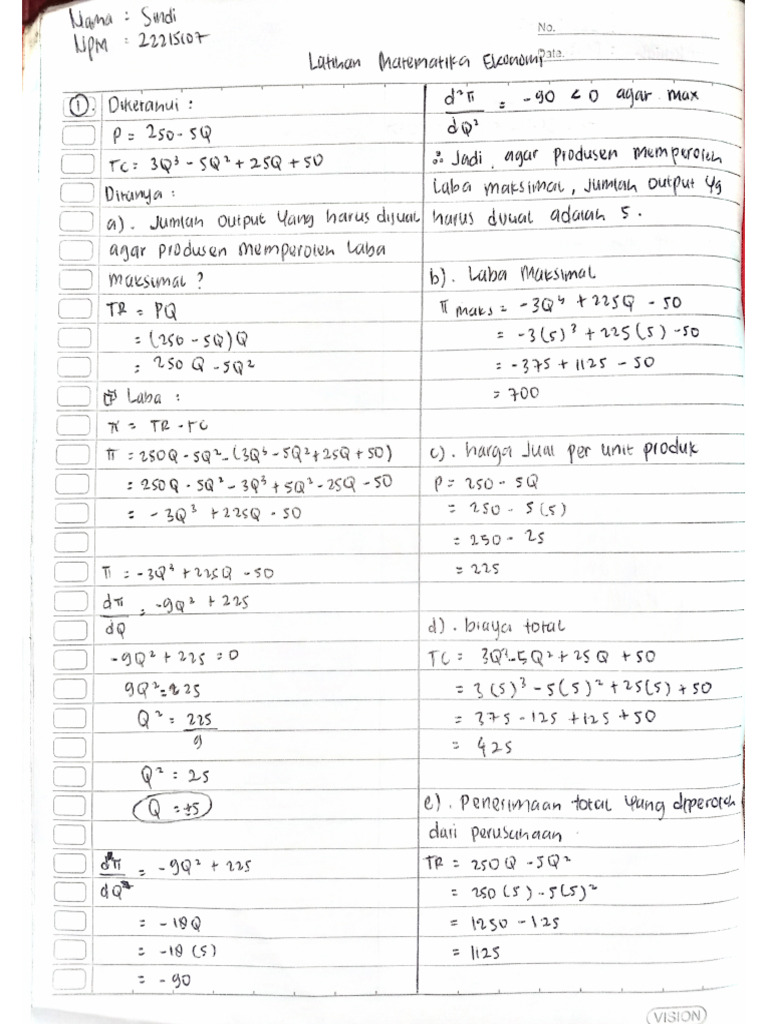 Nama : Sindi
NPM : 22215107
No.
Date.
Latihan Matematika Ekonomi
① Diketahui :
P = 250 - 5Q
TC = 3Q³ - 5Q² + 25Q + 50
Ditanya :
a). Jumlah output yang harus dijual
agar produsen memperoleh laba
maksimal ?
TR = PQ
= (250 - 5Q)Q
= 250 Q - 5Q²
Laba :
π = TR - TC
π = 250Q - 5Q² - (3Q³ - 5Q² + 25Q + 50)
= 250Q - 5Q² - 3Q³ + 5Q² - 25Q - 50
= -3Q³ + 225Q - 50
π = -3Q³ + 225Q - 50
dπ = -9Q² + 225
dQ
-9Q² + 225 = 0
9Q² = 225
Q² = 225
9
Q² = 25
Q = ±5
d²π = -9Q² + 225
dQ²
= -18Q
= -18 (5)
= -90
d²π = -90 < 0 agar max
dQ²
∴ Jadi, agar produsen memperoleh
laba maksimal, jumlah output yg
harus dijual adalah 5.
b). Laba Maksimal
π maks = -3Q³ + 225Q - 50
= -3(5)³ + 225(5) - 50
= -375 + 1125 - 50
= 700
c). harga Jual per unit produk
P = 250 - 5Q
= 250 - 5(5)
= 250 - 25
= 225
d). biaya total
TC = 3Q³ - 5Q² + 25Q + 50
= 3(5)³ - 5(5)² + 25(5) + 50
= 375 - 125 + 125 + 50
= 425
e). Penerimaan total yang diperoleh
dari perusahaan
TR = 250Q - 5Q²
= 250 (5) - 5(5)²
= 1250 - 125
= 1125
VISION